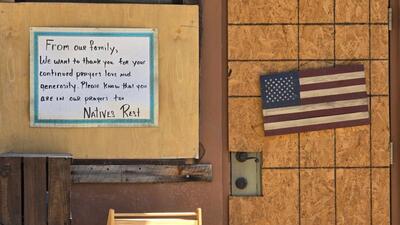 From our family,
We want to thank you for your
continued prayers love and
generosity. Please know that you
are in our prayers too
Natives Rest